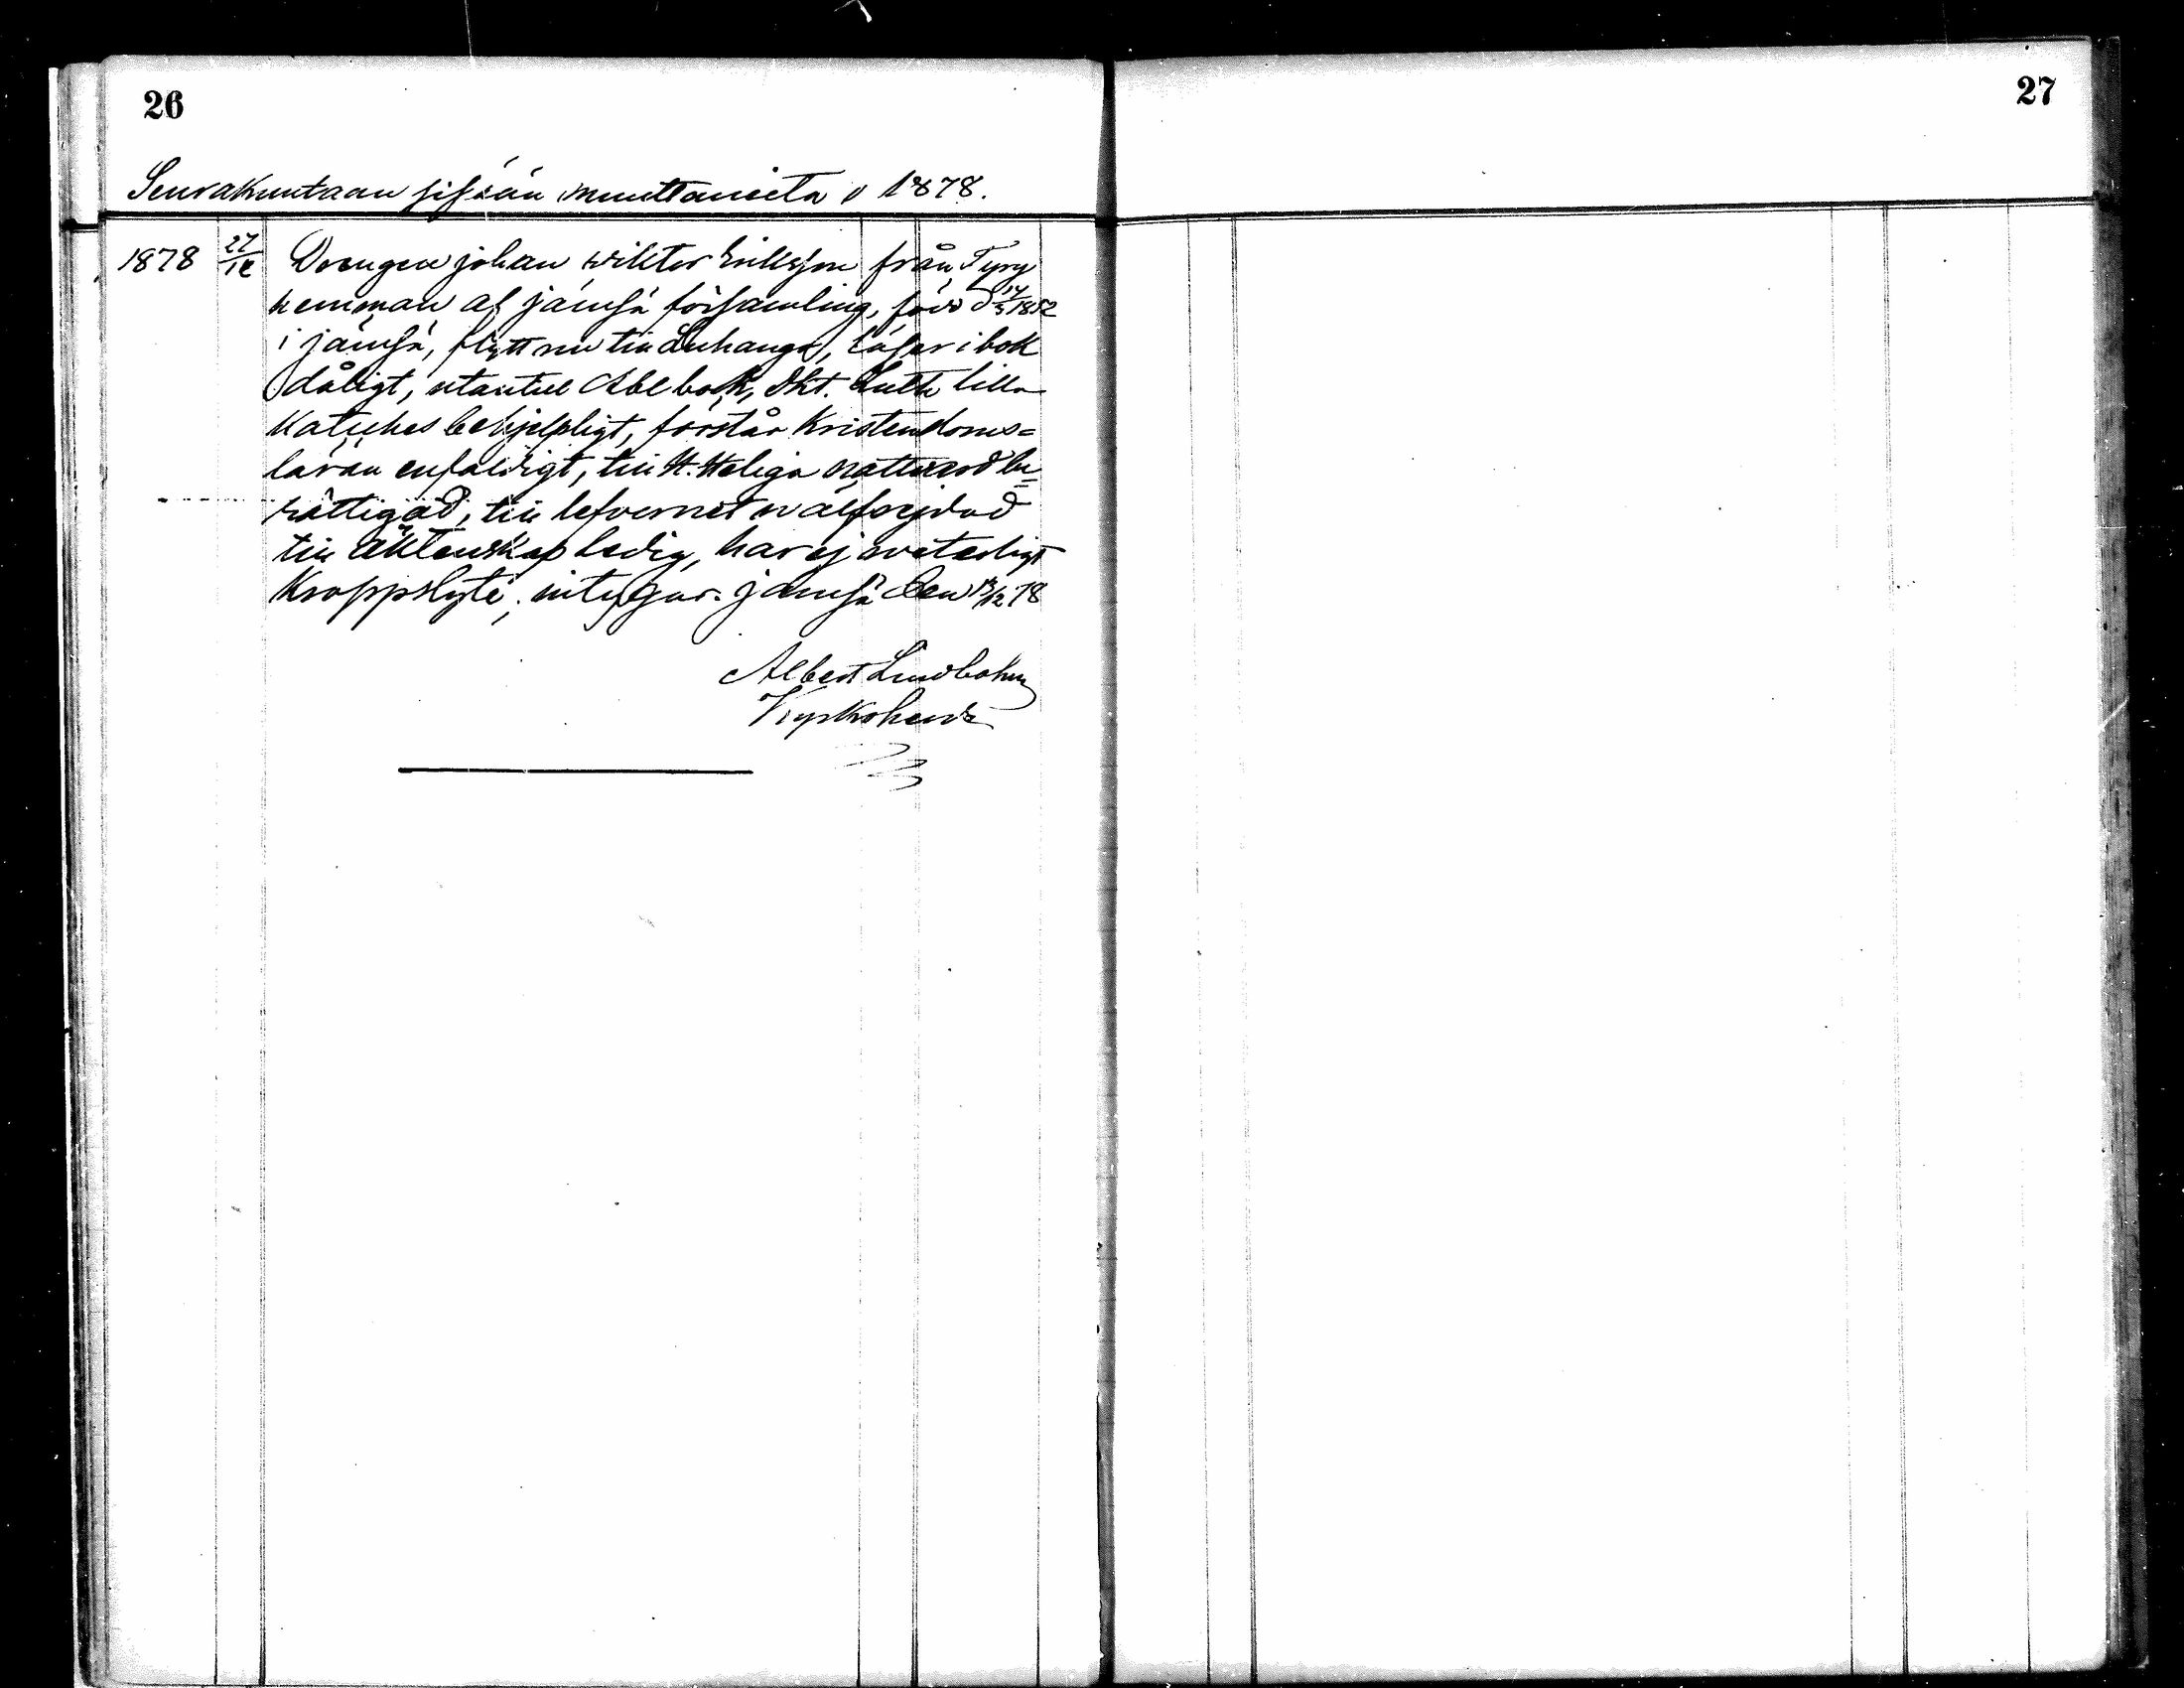 26
27
Seurakuntaan sissään muuttaneita v 1878.
1878 27/12 Drengen johan wiktor Eriksson från Tyry
hemman af jämsä församling, född d 14/3 1852
i jämsä, flytt nu till Luhanga, läser i bok
dåligt, utantill Abl bok, Dkt. Luth lilla
katekes behjelpligt, förstår Kristendoms=
läran enfaldigt, till H. Heliga nattward be=
rättigad, till lefvernet wälfrejdad
till äktenskap ledig, har ej weterligt
kroppslyte; intygar. jämsä den 13/12 78
Albert Lindbohm
Kyrkoherde